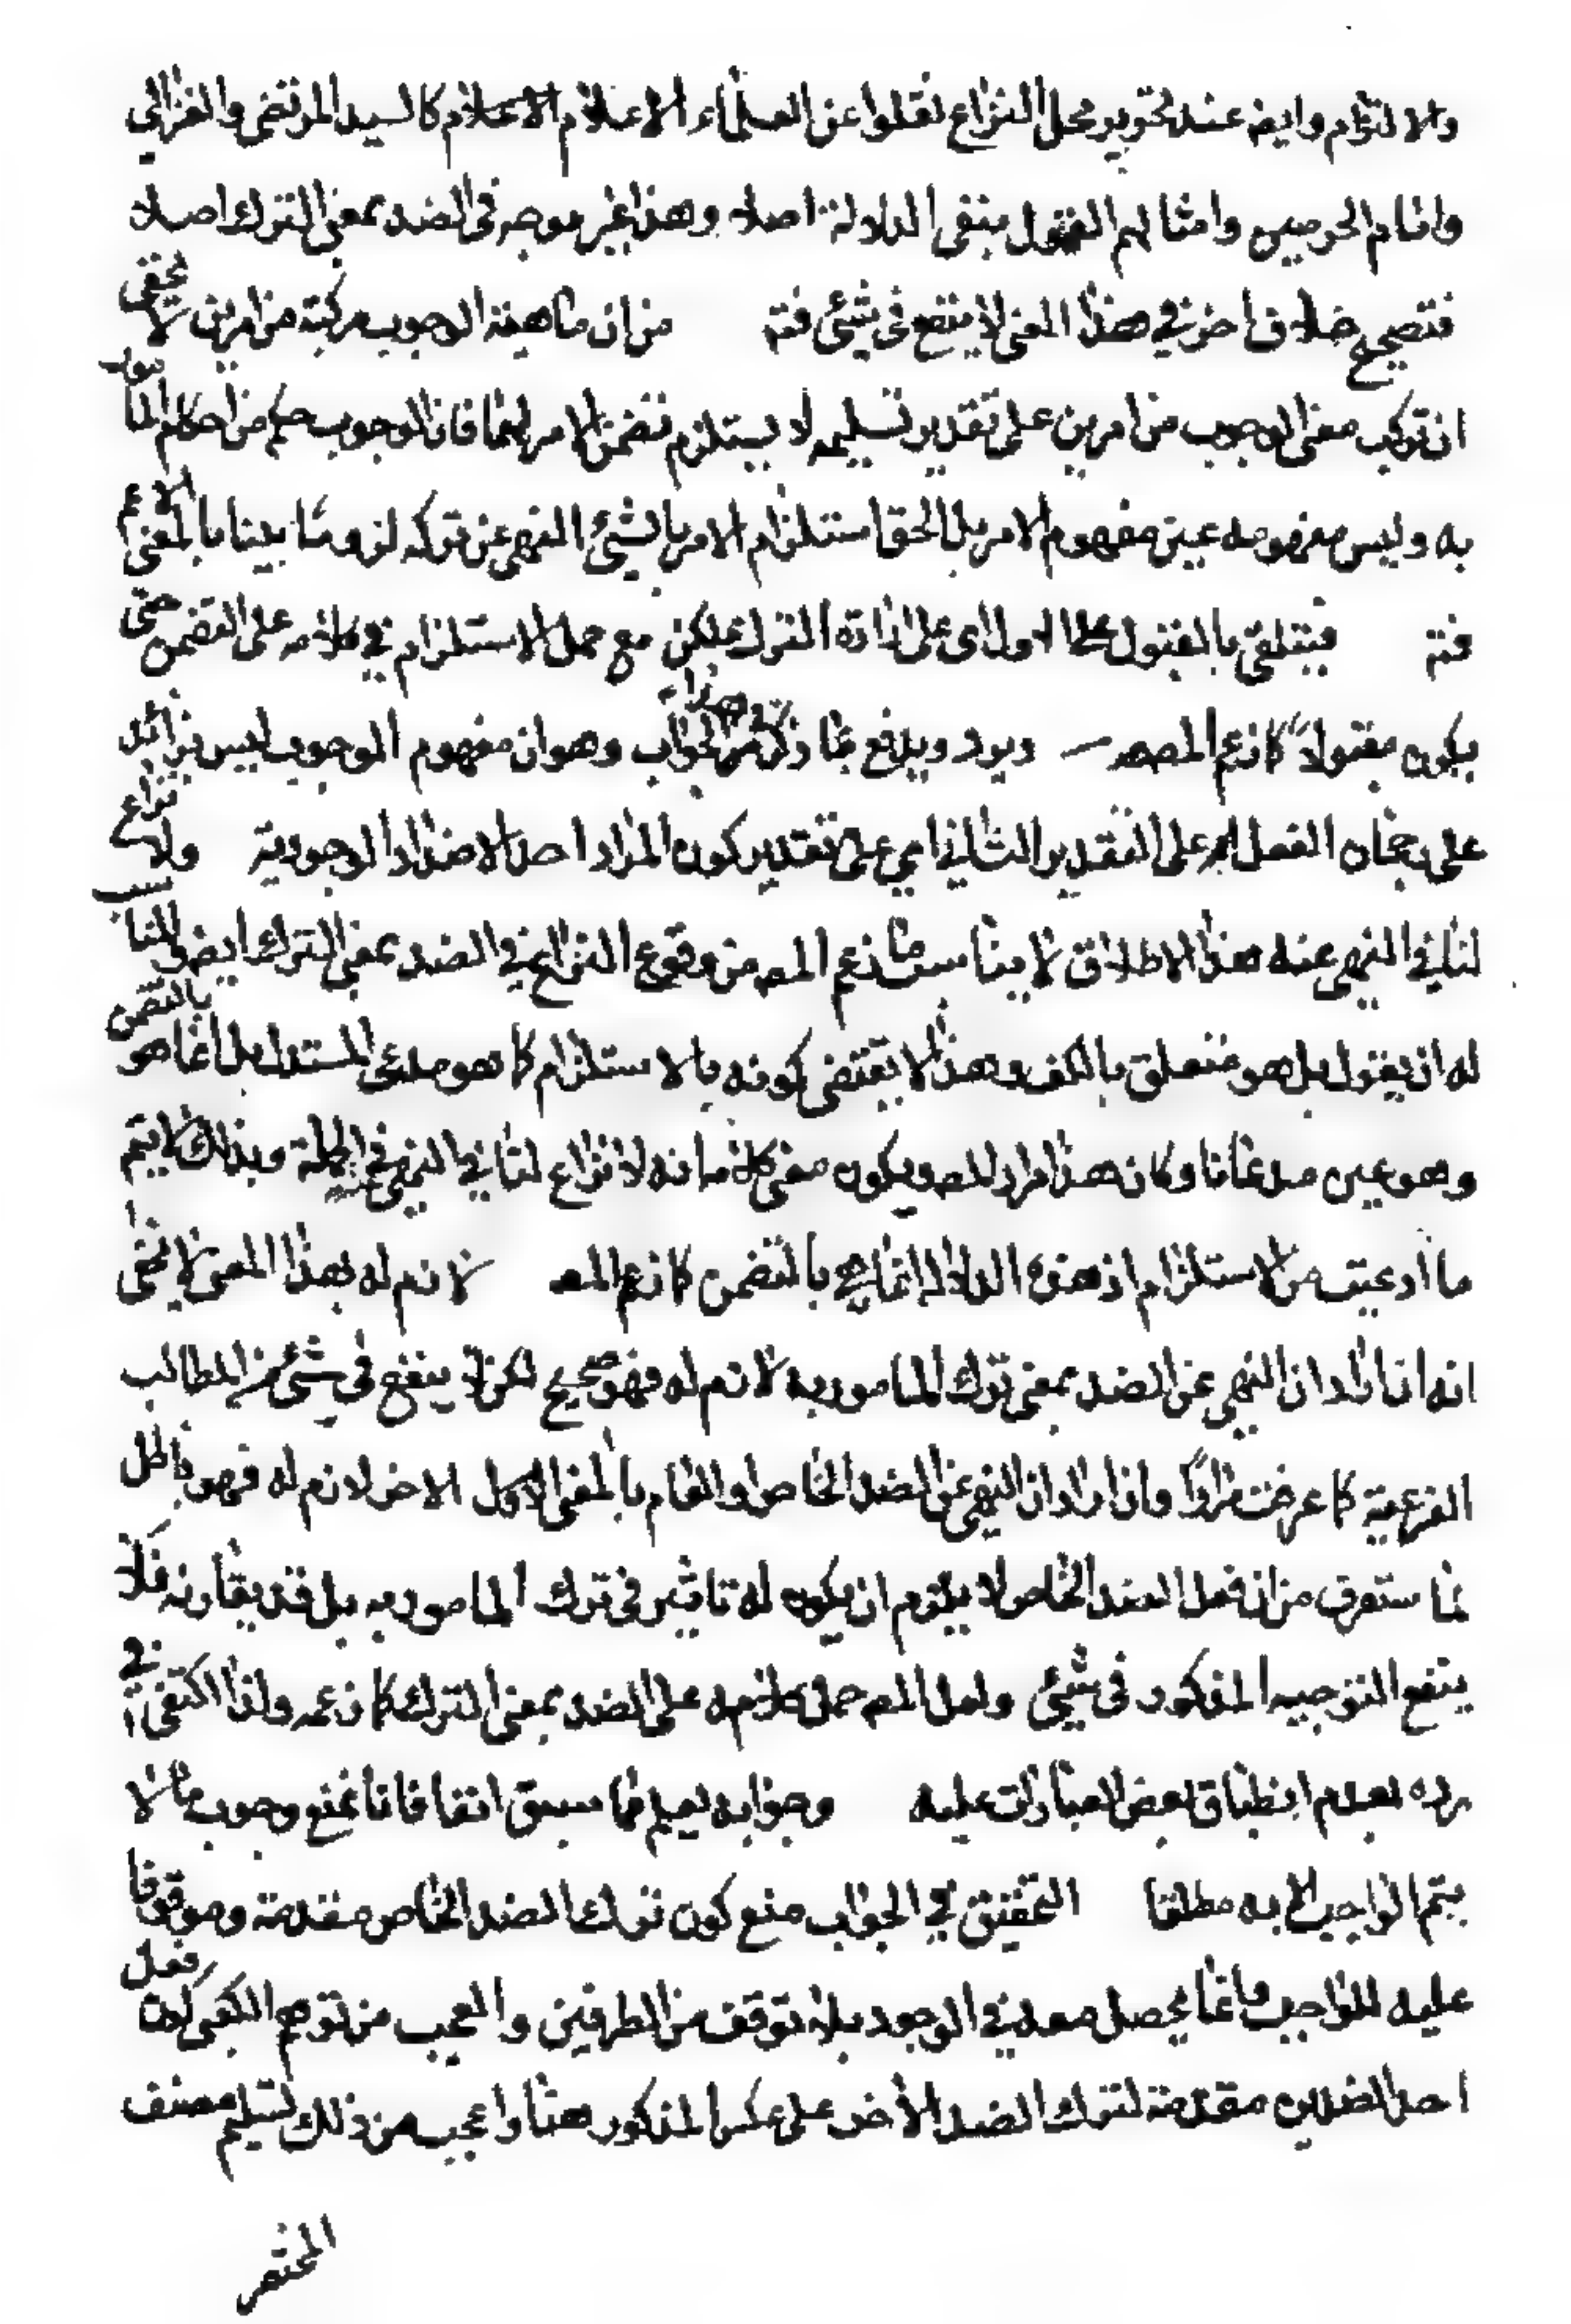 والالتزام وايضا عند تحرير محل النزاع نقلوا عن العلماء الاعلام كالسيد المرتضى والغزالي
وامام الحرمين وامثالهم القول بنفى الدلالة اصلا وهذا غير موجه فى الضد بمعنى الترك اصلا
فتصحيح خلاف اخر في هذا المعنى لا ينفع فى شئ فتم من ان ماهية الوجوب مركبة من امرين لا يخفى
ان تركب معنى الوجوب من امرين على تقدير تسليمه لا يستلزم تضمن الامر لهما فان الوجوب حكم من احكام المأمور
به وليس مفهومه عين مفهوم الامر بل الحق استلزام الامر بالشئ النهى عن تركه لزوما بينا بالمعنى الاعم
فتم فيتلقى بالقبول على الاول اى على ارادة الترك لكن مع حمل الاستلزام في كلامه على التضمن حتى
يكون مقبولا كما زعم المصه ويرد ويدفع بما ذكر في هذا الجواب وهو ان مفهوم الوجوب ليس بزائد
على رجحان الفعل اه على التقدير الثاني اي على تقدير كون المراد احد الاضداد الوجودية ولا نزاع
لنا في النهى عنه هذا الاطلاق لا يناسب ما زعم المصه من وقوع النزاع في الضد بمعنى الترك ايضا فالمناسب
له ان يقول بل هو متعلق بالكف وهذا لا يقتضى كونه بالاستلزام كما هو مدعى المستدل بل انما هو بالتضمن
وهو عين مدعانا وكان هذا مراد المصه ويكون معنى كلامه انه لا نزاع لنا في النهى عنه في الجملة وبذلك لا يتم
ما ادعيت من الاستلزام اذ هذه الدلالة انما هي بالتضمن كما زعم المصه لازم له بهذا المعنى لا يخفى
انه ان اراد ان النهى عن الضد بمعنى ترك المامور به لازم له فهو صحيح لكن لا ينفع في شئ من المطالب
الفرعية كما عرفت مرارا وان اراد ان النهى عن الضد الخاص او العام بالمعنى الاول الاخر لازم له فهو باطل
لما ستعرف من ان فعل الضد الخاص لا يلزم ان يكون له تاثير فى ترك المامور به بل قد يقارنه فلا
ينفع التوجيه المذكور فى شئ ولعل المصه حمل كلامه على الضد بمعنى الترك كما زعمه ولذا اكتفى في
رده بعدم انطباق بعض العبارات عليه وجوابه يعلم مما سبق انفا فانا نمنع وجوب ما لا
يتم الواجب الا به مطلقا التحقيق في الجواب منع كون ترك الضد الخاص مقدمة وموقوفا
عليه للواجب وانما يحصل معه في الوجود بلا توقف من الطرفين والعجب من توهم الكعبى كون فعل
احد الضدين مقدمة لترك الضد الاخر على عكس المذكور هنا واعجب من ذلك تسليم مصنف
المختصر